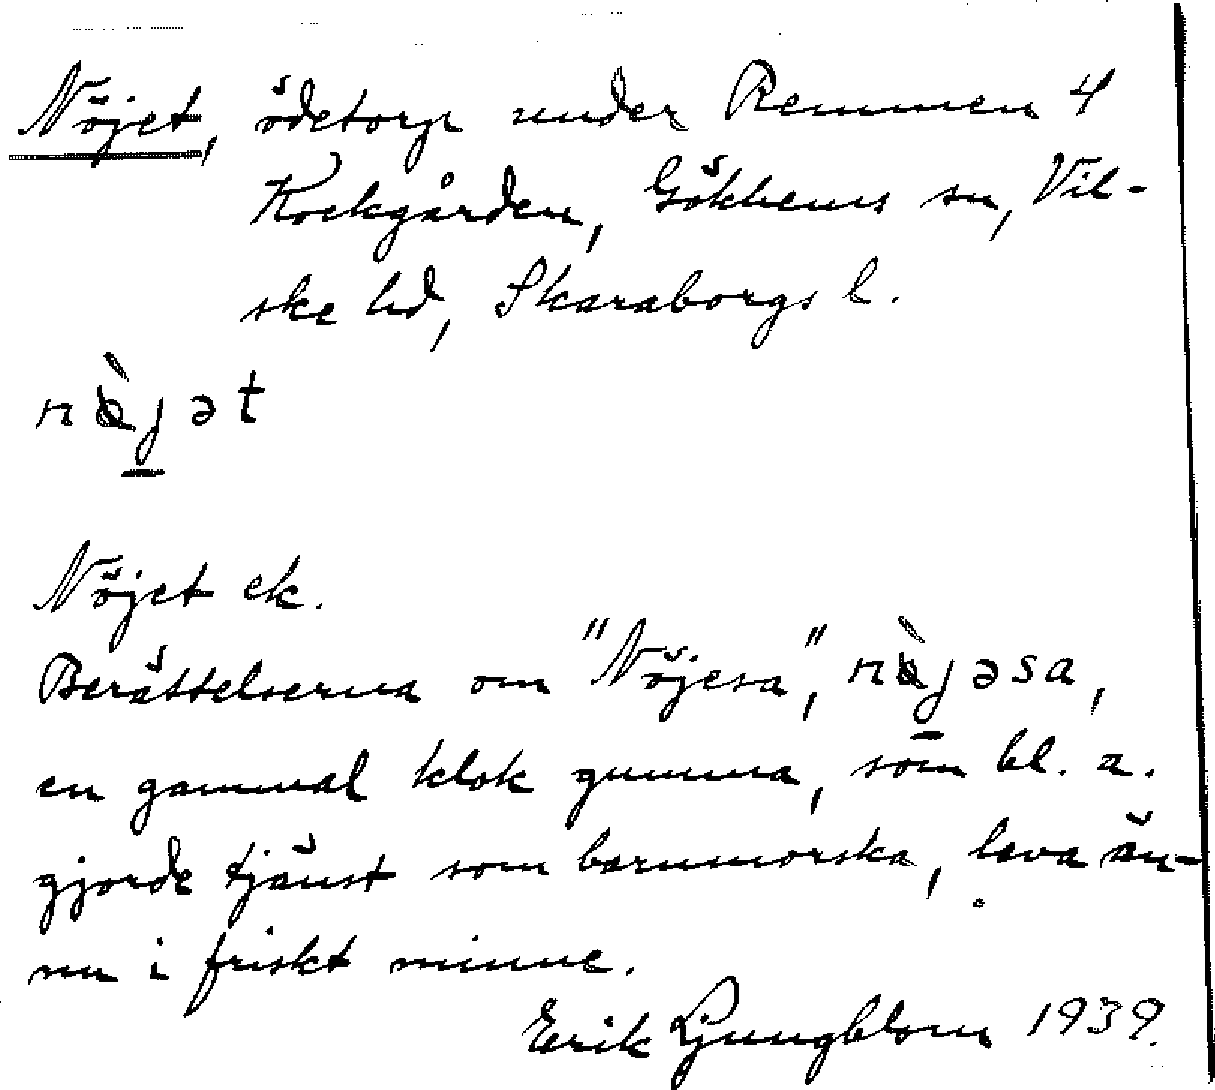 Nöjet, ödetorp under Remmen 4
Kockgården, Gökhems sn, Vil-
ske hd, Skaraborgs l.
nø̀jət
Nöjet ek.
Berättelserna om "Nöjesa", nø̀jəsa,
en gammal klok gumma, som bl. a.
gjorde tjänst som barnmorska, leva än-
nu i friskt minne.
Erik Ljungblom 1939.